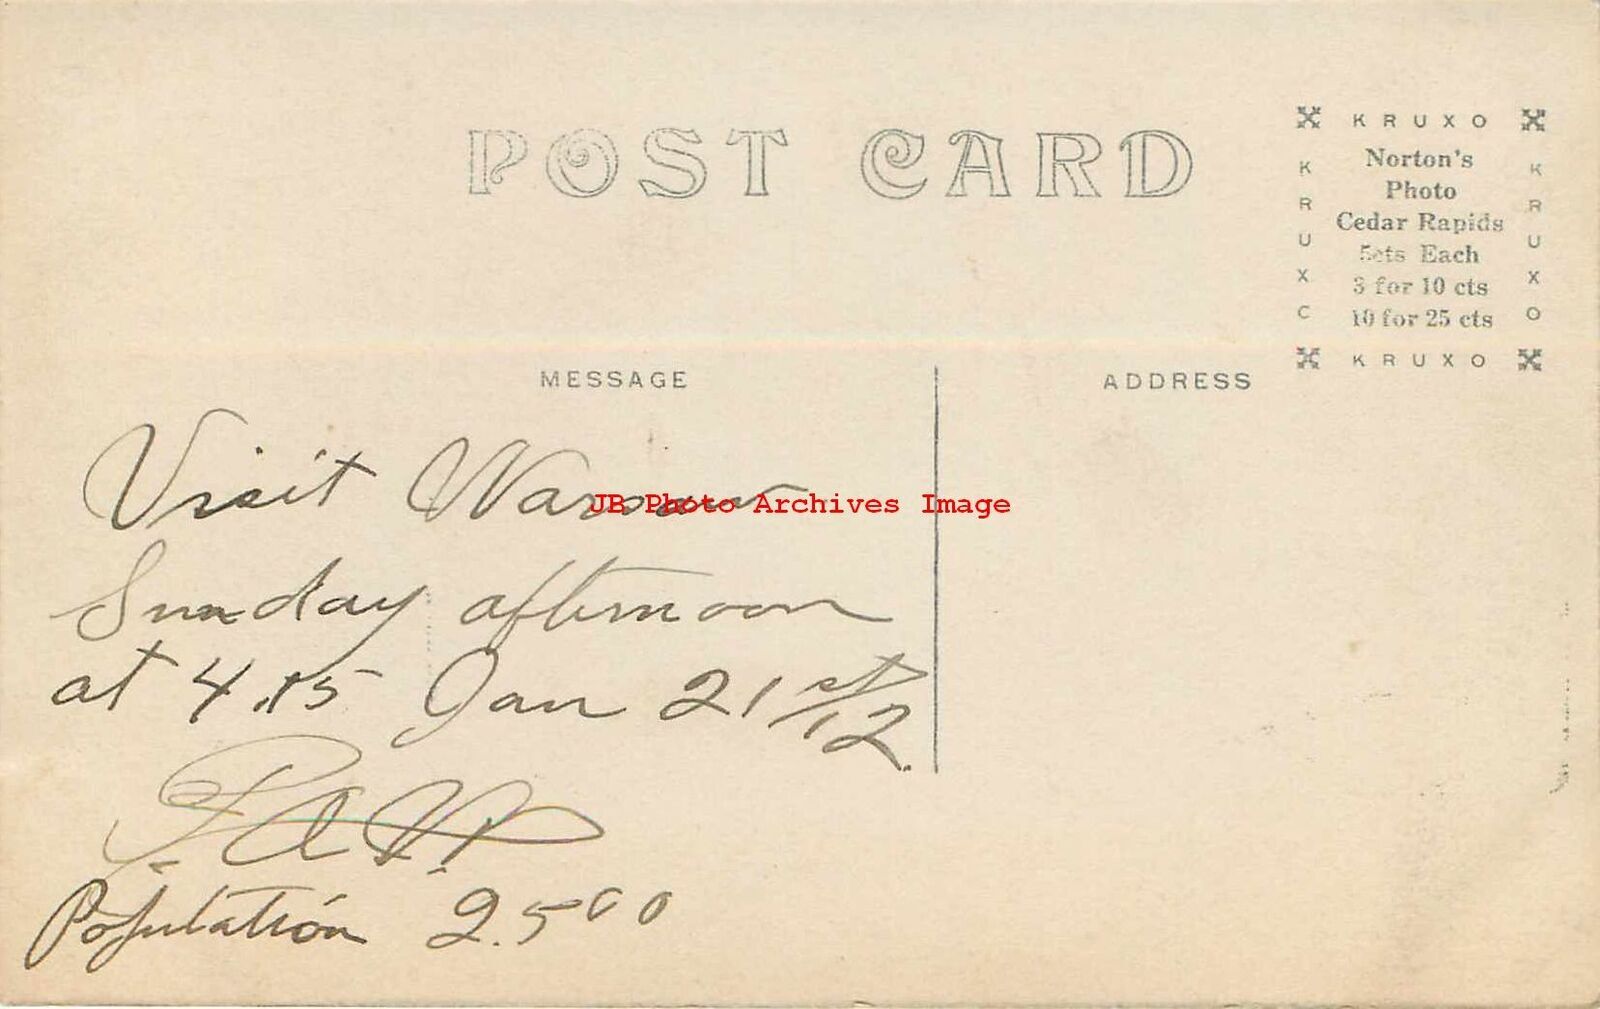 POST CARD
KRUXO
KRUXO
Norton's
Photo
Cedar Rapids
5cts Each
3 for 10 cts
10 for 25 cts
KRUXO
KRUXO
MESSAGE
ADDRESS
Visit Warsaw
JB Photo Archives Image
Sunday afternoon
at 4.15 Jan 21st/12.
Population 2.500